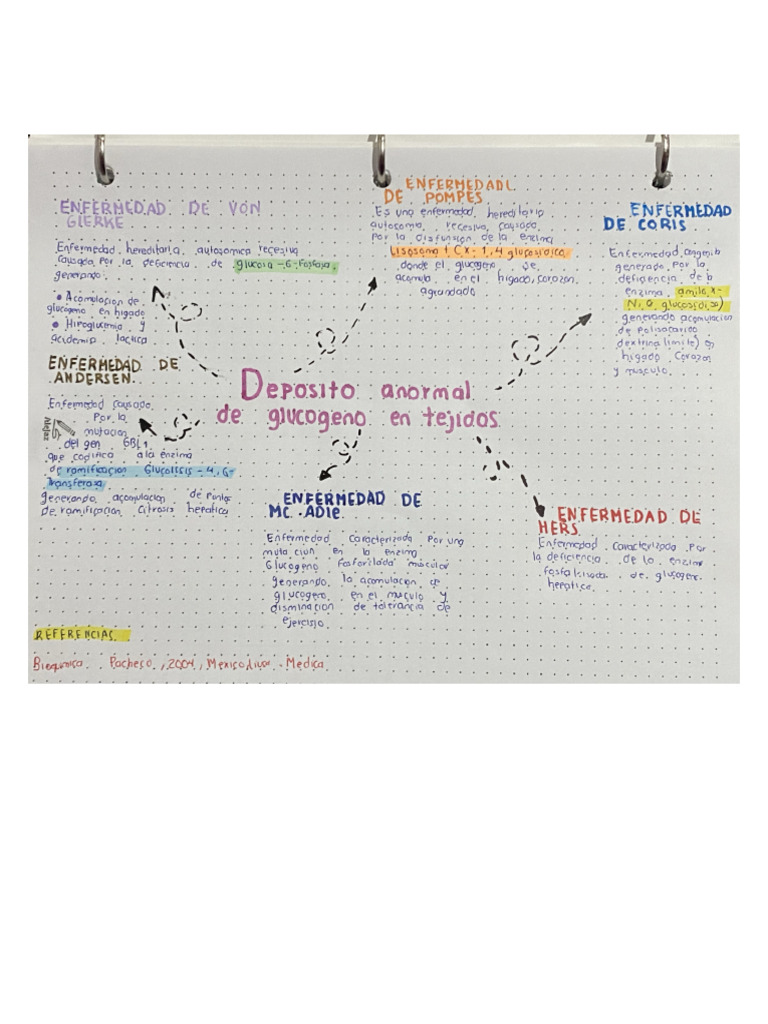 ENFERMEDAD DE VON
GIERKE
Enfermedad hereditaria autosomica recesiva
causada por la deficiencia de glucosa-6-fosfasa
generando:
• Acomolacion de
glucogeno en higado
• Hipoglucemia y
acidemia lactica
ENFERMEDADL
DE POMPES
Es una enfermedad hereditario
autosoma recesivo, causado
por la disfunsion de la enzima
Lisosoma 1 Cx-1,4 glucosidica
donde el glucogeno se
acomula en el higado, corazon,
agrandado
ENFERMEDAD
DE CORIS
Enfermedad congenita
generado por la
deficiencia de la
enzima
generando acomulacion
de polisacarido
dextrina limite) en
higado Corazon
y musculo.
ENFERMEDAD DE
ANDERSEN.
Enfermedad causada
Por la
mutacion
del gen GBL1
que codifica a la enzima
de ramificacion Glucolisis-4,6-
transferasa
generando acomulacion de puntos
de ramificacion Citrosis hepatica
Deposito anormal
de glucogeno en tejidos
ENFERMEDAD DE
MC. ADIE
Enfermedad caracterizada por una
mutacion en la enzima
Glucogeno fosforilada muscular
generando la acomulacion de
glucogeno en el musculo y
disminacion de tolerancia de
ejercisio.
ENFERMEDAD DE
HERS
Enfermedad caracterizada por
la deficiencia de la enzima
de glucogeno
hepatica.
REFERENCIAS.
Bioquimica. Pacheco, 2004, Mexico. Medica